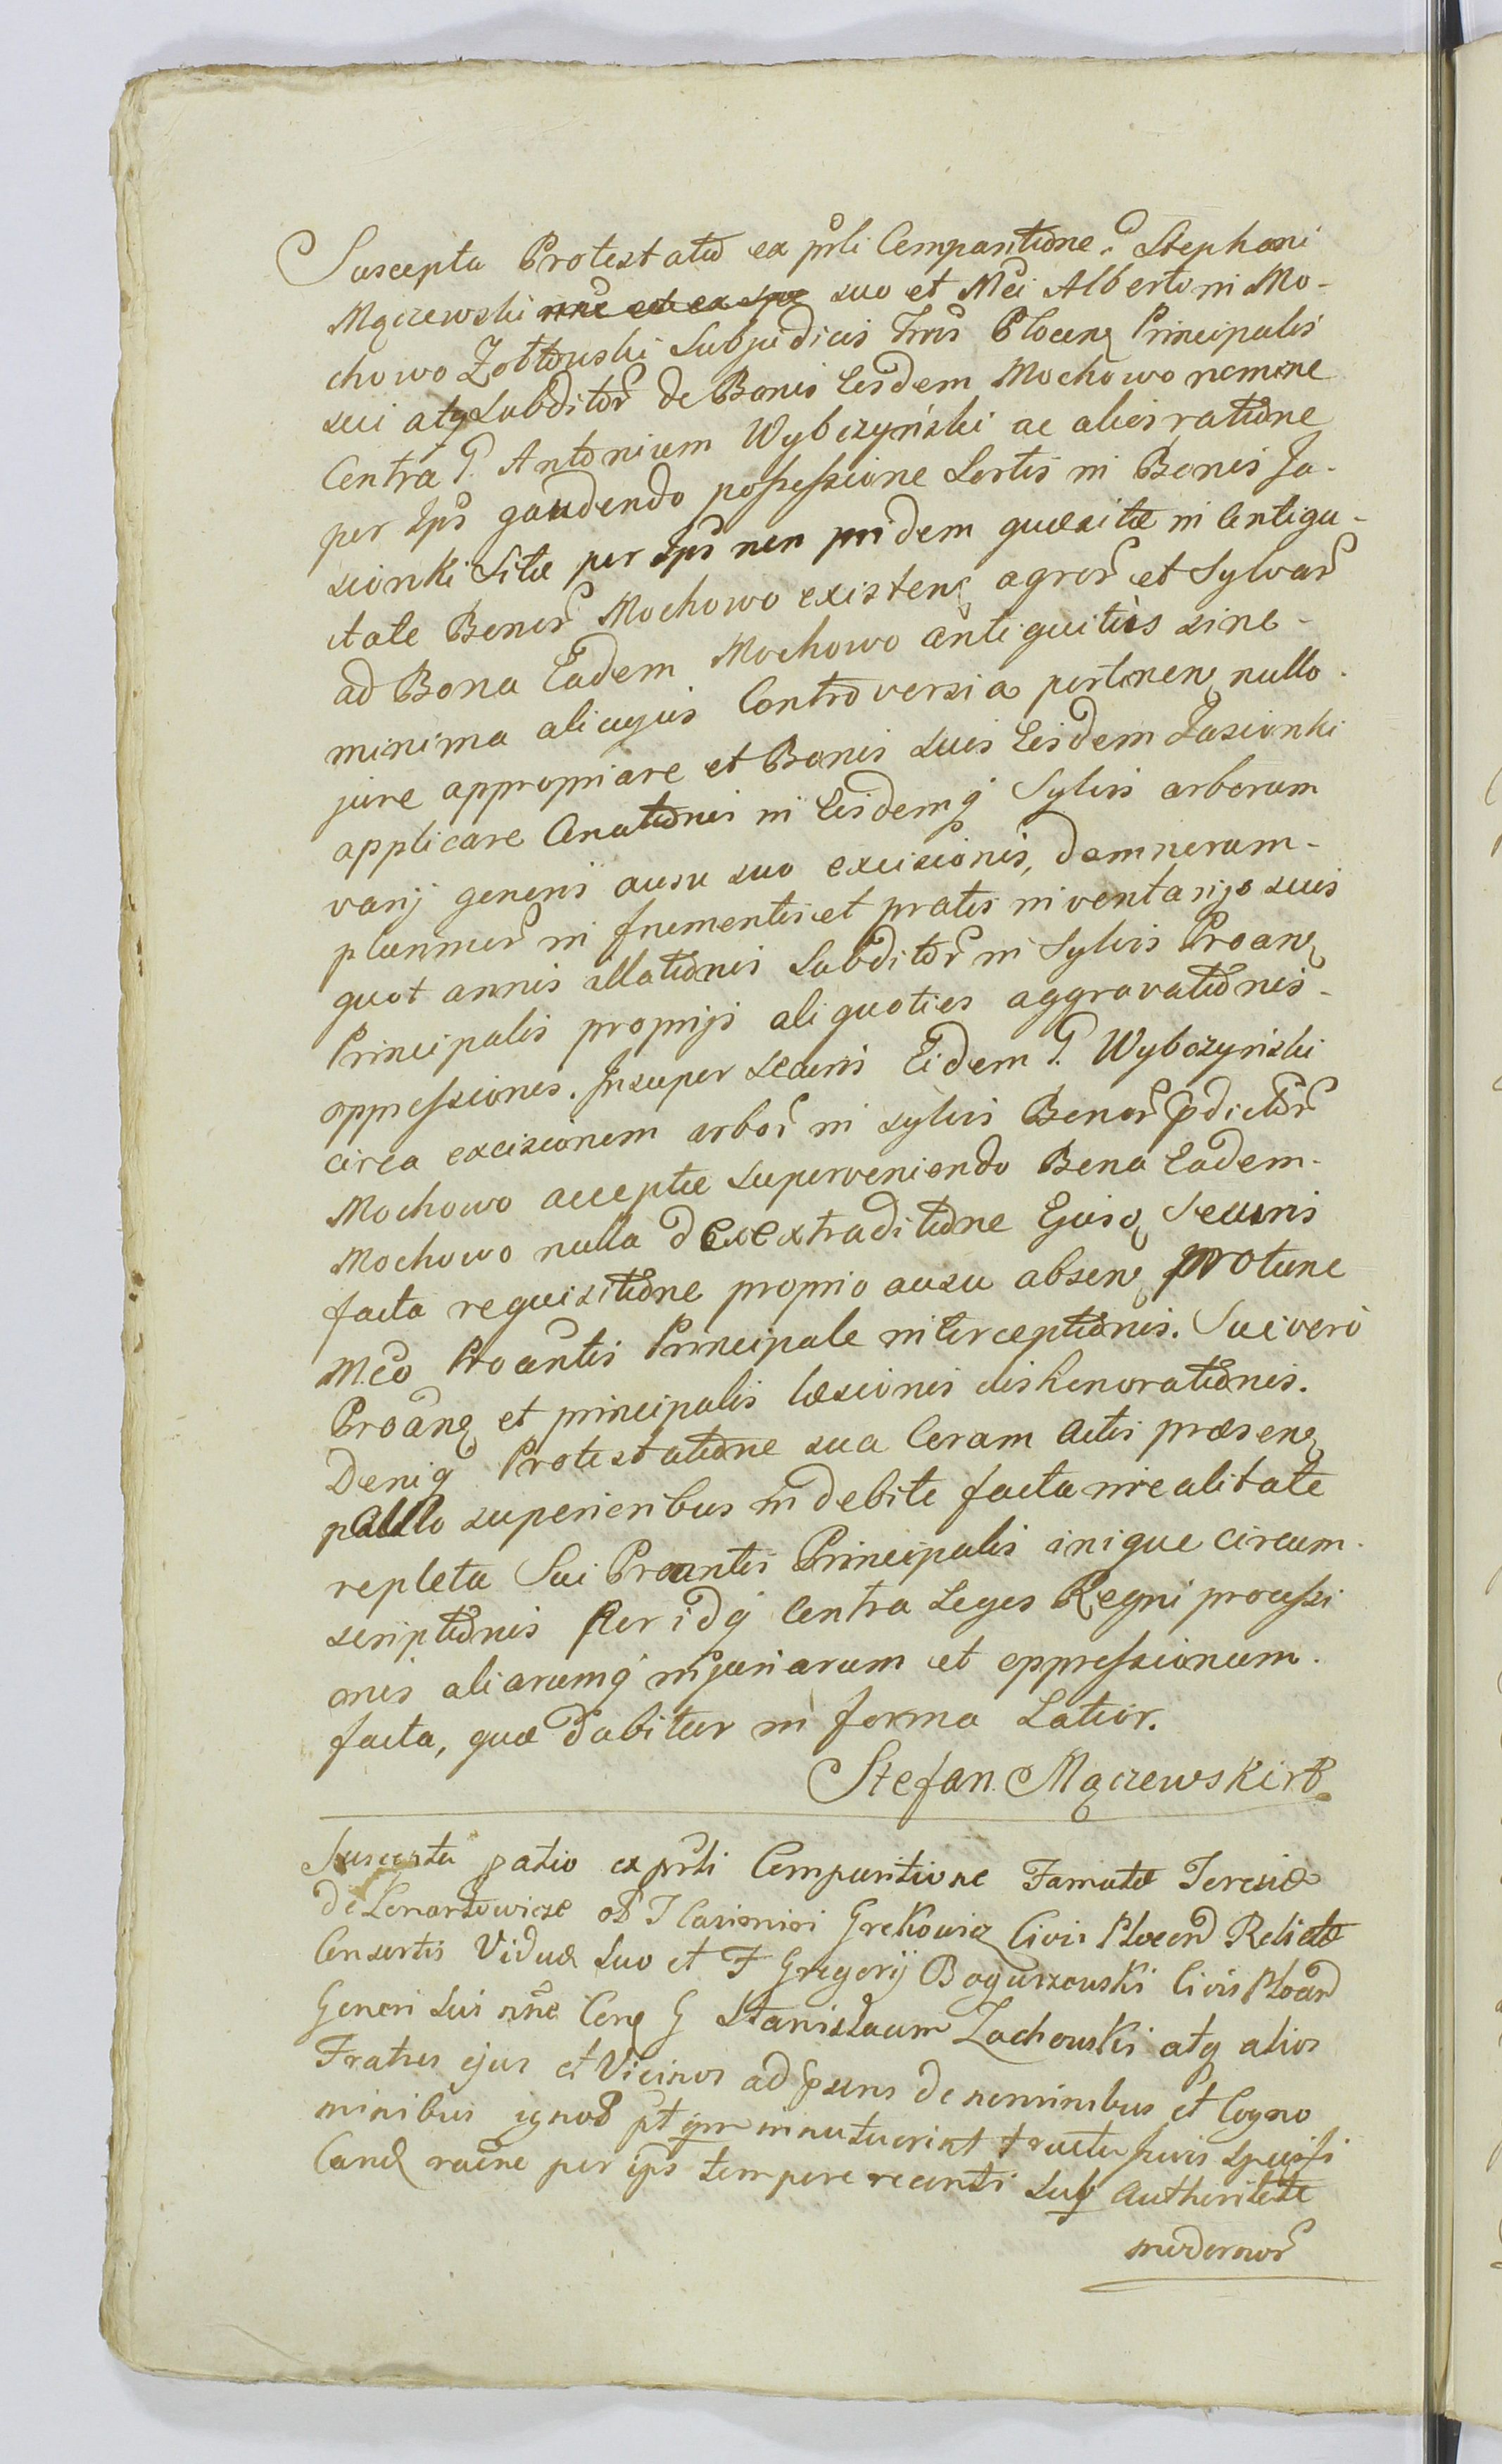 Suscepta Protestatio ex prli Comparitione G. Stephani
Mączewski nne ex suo et Mci Alberti in Mo-
chowo Zobtowski Subjudicis Trris Plocens Principalis
sui atq Subditor de Bonis Eisdem Mochowo nomine
Contra G. Antonium Wybczyński ac alios ratione
per Ips gaudendo possessione Sortis in Bonis Ja-
sionki Sitae per Ips non pridem quaesitae in Contigu-
itate Bonor Mochowo existens agror et Sylvar
ad Bona Eadem Mochowo antiquitùs sine-
minima alicujus Controversia pertinens nullo
jure appropriare et Bonis suis Eisdem Jasionki
applicare Conationis in Eisdemq Sylvis arborum
varij generis ausu suo excisionis, damnorum-
plurimor in frumentis et pratis inventarijs suis
quot annis illationis Subditor in Sylvis Proans
Principalis proprijs aliquoties aggravationis-
oppressiones. Insuper securis Eidem G. Wybczyński
circa excisionem arbor in sylvis Bonor pdictor
Mochowo acceptae superveniendo Bona Eadem-
Mochowo nulla de extraditione Ejusq Securis
facta requisitione proprio ausu absens protunc
Mco Proantis Principale interceptionis. Sui verò
Proans et principalis laesionis dishonorationis.
Deniq Protestatione sua Coram Actis praesens
paulo superioribus indebite facta irrealitate
repleta Sui Proantis Principalis inique circum-
scriptionis Per idq Contra Leges Regni processi
onis aliarumq injuriarum et oppressionum.
facta, quae dabitur in forma Latior.
Stefan Mączewski
Suscepta patio ex prli Comparitione Famatae Teresiae
de Lenartowicze ol Casimiri Grekowicz Civis Plocens Relictae
Consortis Viduae suo et F Gregorij Bogurzewski Civis Plocens
Generi sui nne Cong G Stanislaum Zochowski atq alios
Fratres ejus et Vicinos ad psens de nominibus et Cogno
minibus ignot pt innotuerint tractu Juris specifi
Cand raone per ips tempore recenti sub Authoritate
modernor